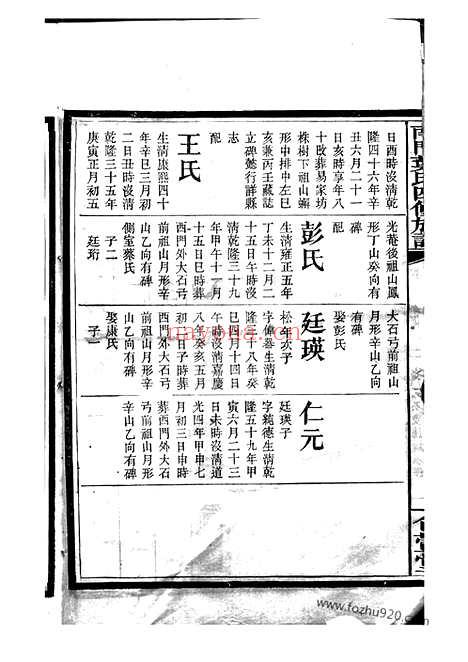 日酉時沒清乾
隆四十六年辛
丑六月二十一
日亥時享年八
十歲葬易家坊
株樹下祖山蝌
形中排中左巳
亥兼丙壬藏誌
立碑懿行詳縣
志
配
王氏
生清康熙四十
年辛巳三月初
二日丑時沒清
乾隆三十五年
庚寅正月初五
光菴後祖山鳳
形丁山癸向有
碑
配
彭氏
生清雍正五年
丁未十二月二
十五日午時沒
清乾隆三十九
年甲午十一月
十五日巳時葬
西門外大石弓
前祖山月形辛
山乙向有碑
側室蔡氏
子二
廷珩
大石弓前祖山
月形辛山乙向
有碑
娶彭氏
廷瑛
松年次子
字偉 生清乾
隆十八年癸
巳四月十四日
午時沒清嘉慶
八年癸亥五月
初十日子時葬
西門外大石弓
前祖山月形辛
山乙向有碑
娶康氏
子一
仁元
廷瑛子
字純德生清乾
隆五十九年甲
寅六月二十三
日未時沒清道
光四年甲申七
月初三日申時
葬西門外大石
弓前祖山月形
辛山乙向有碑
www.fozhu920.com